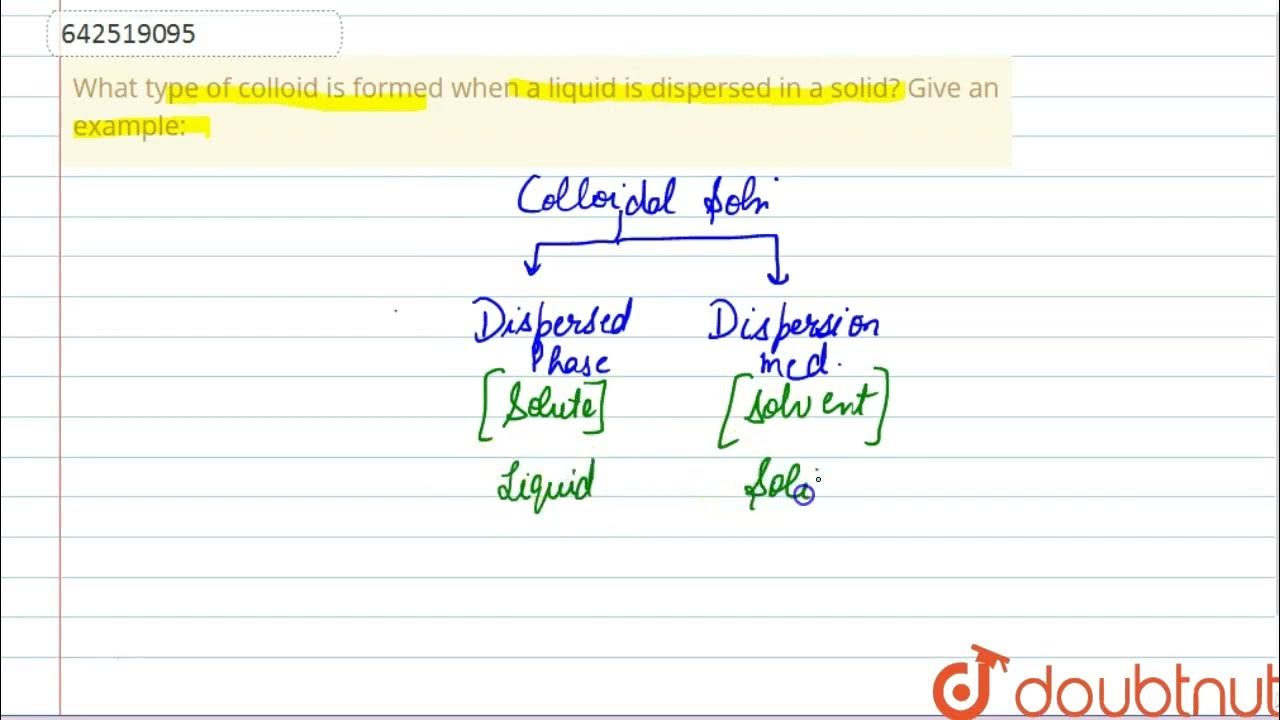 642519095
What type of colloid is formed when a liquid is dispersed in a solid? Give an
example:
Colloidal Soln
Dispersed Dispersion
Phase med.
[Solute] [Solvent]
Liquid Soli
doubtnut